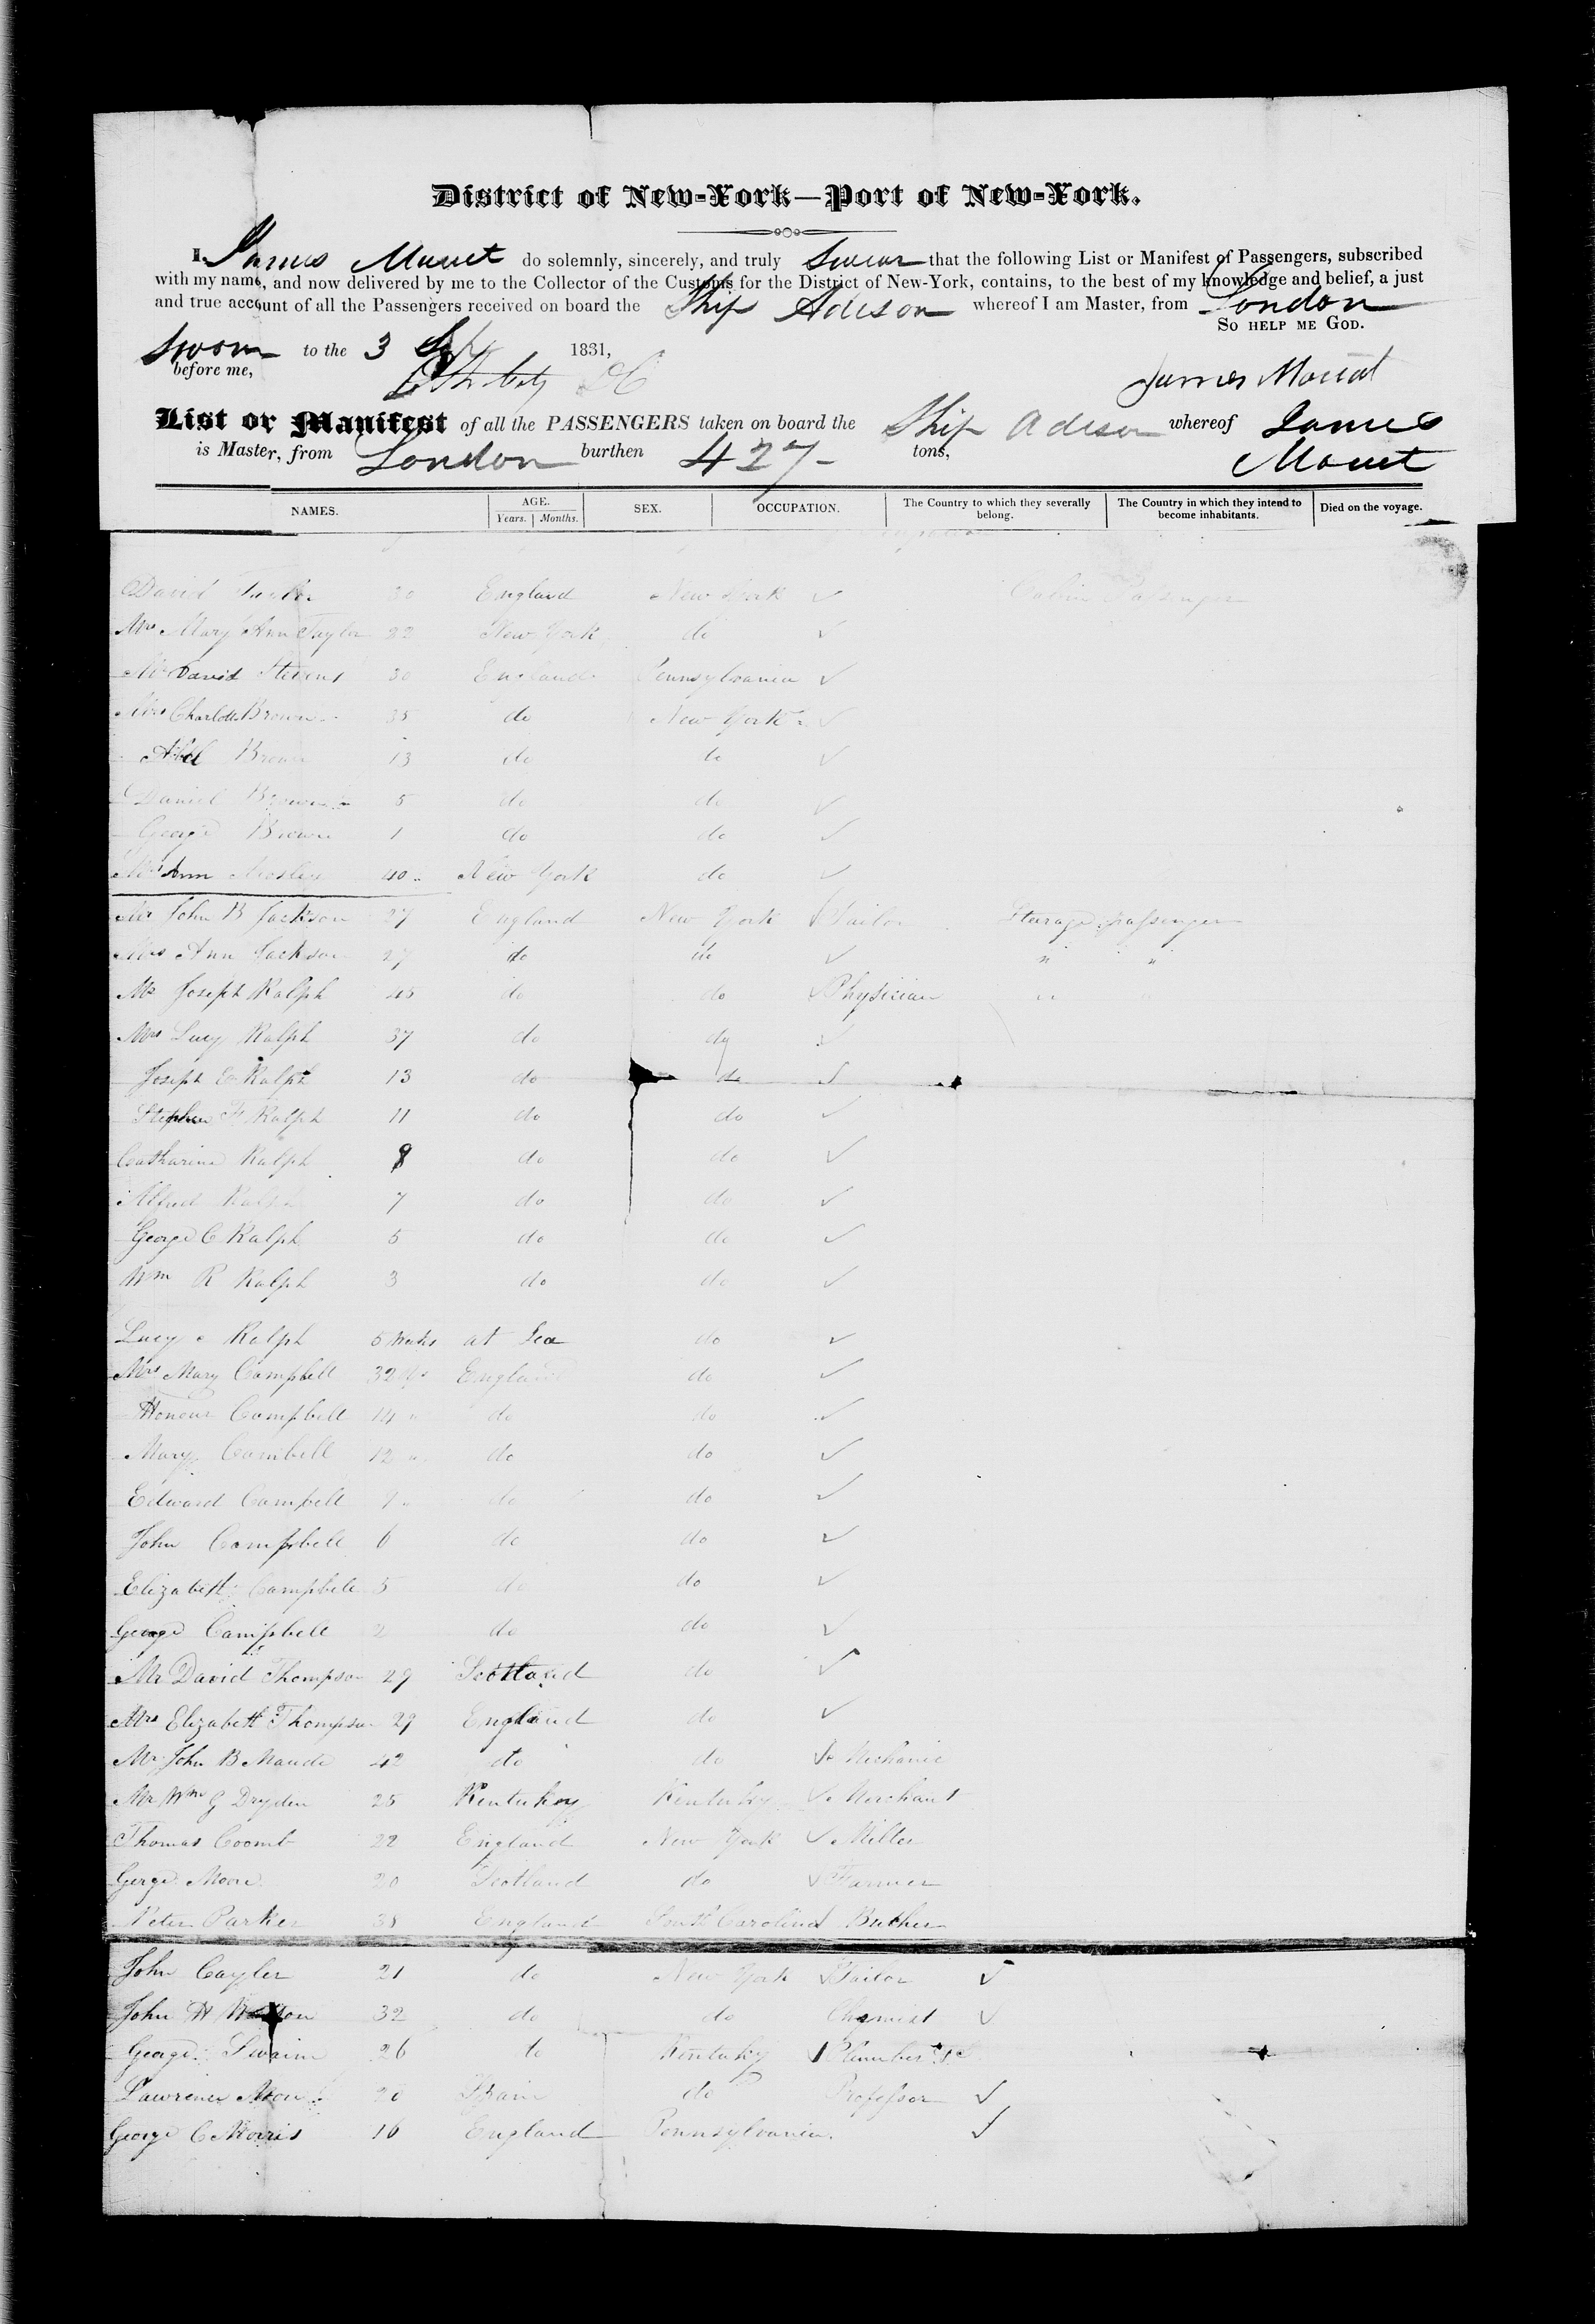 District of New-York—Port of New-York.
I James Mouet do solemnly, sincerely, and truly Swear that the following List or Manifest of Passengers, subscribed
with my name, and now delivered by me to the Collector of the Customs for the District of New-York, contains, to the best of my knowledge and belief, a just
and true account of all the Passengers received on board the Ship Adison whereof I am Master, from London
So help me God.
Sworn to the 3 Sept 1831,
before me,
James
List or Manifest of all the PASSENGERS taken on board the Ship Adison whereof James
is Master, from London burthen 427 tons, Mouet
NAMES. AGE. Years. Months. SEX. OCCUPATION. The Country to which they severally belong. The Country in which they intend to become inhabitants. Died on the voyage.
David 30 England New York ✓ Cabin Passenger
Mrs Mary Ann Taylor 22 New York do ✓
Mr David Stevens 30 England Pennsylvania ✓
Mrs Charlotte Brown 35 do New York ✓
Abel Brown 13 do do ✓
Daniel Brown 5 do do ✓
George Brown 1 do do ✓
Mrs Ann 40 New York do ✓
Mr John B Jackson 27 England New York ✓ Tailor Stearage passenger
Mrs Ann Jackson 27 do do ✓ " "
Mr Joseph Ralph 45 do do ✓ Physician " "
Mrs Lucy Ralph 37 do do ✓
Joseph E Ralph 13 do do ✓
Stephen F Ralph 11 do do ✓
Catharine Ralph 8 do do ✓
Alfred Ralph 7 do do ✓
George C Ralph 5 do do ✓
Wm R Ralph 3 do do ✓
Lucy Ralph 5 Weeks at Sea do ✓
Mrs Mary Campbell 32 England do ✓
Honour Campbell 14 " do do ✓
Mary Cambell 12 " do do ✓
Edward Campbell 9 " do do ✓
John Campbell 6 do do ✓
Elizabeth Campbell 5 do do ✓
George Campbell 2 do do ✓
Mr David Thompson 29 Scotland do ✓
Mrs Elizabeth Thompson 29 England do ✓
Mr John B Maude 42 do do ✓ Mechanic
Mr Wm G Dryden 25 Kentukey Kentuky ✓ Merchant
Thomas Coomb 22 England New York ✓ Miller
Gerge Moore 20 Scotland do ✓ Farmer
Peter Parker 38 England South Carolina ✓ Butcher
John Cayler 21 do New York ✓ Tailor ✓
John H 32 do do Chemist ✓
George Swaim 26 do Kentuky ✓ Plumber &c
Lawrence 20 Spain do Professor ✓
George C Morris 16 England Pennsylvania ✓